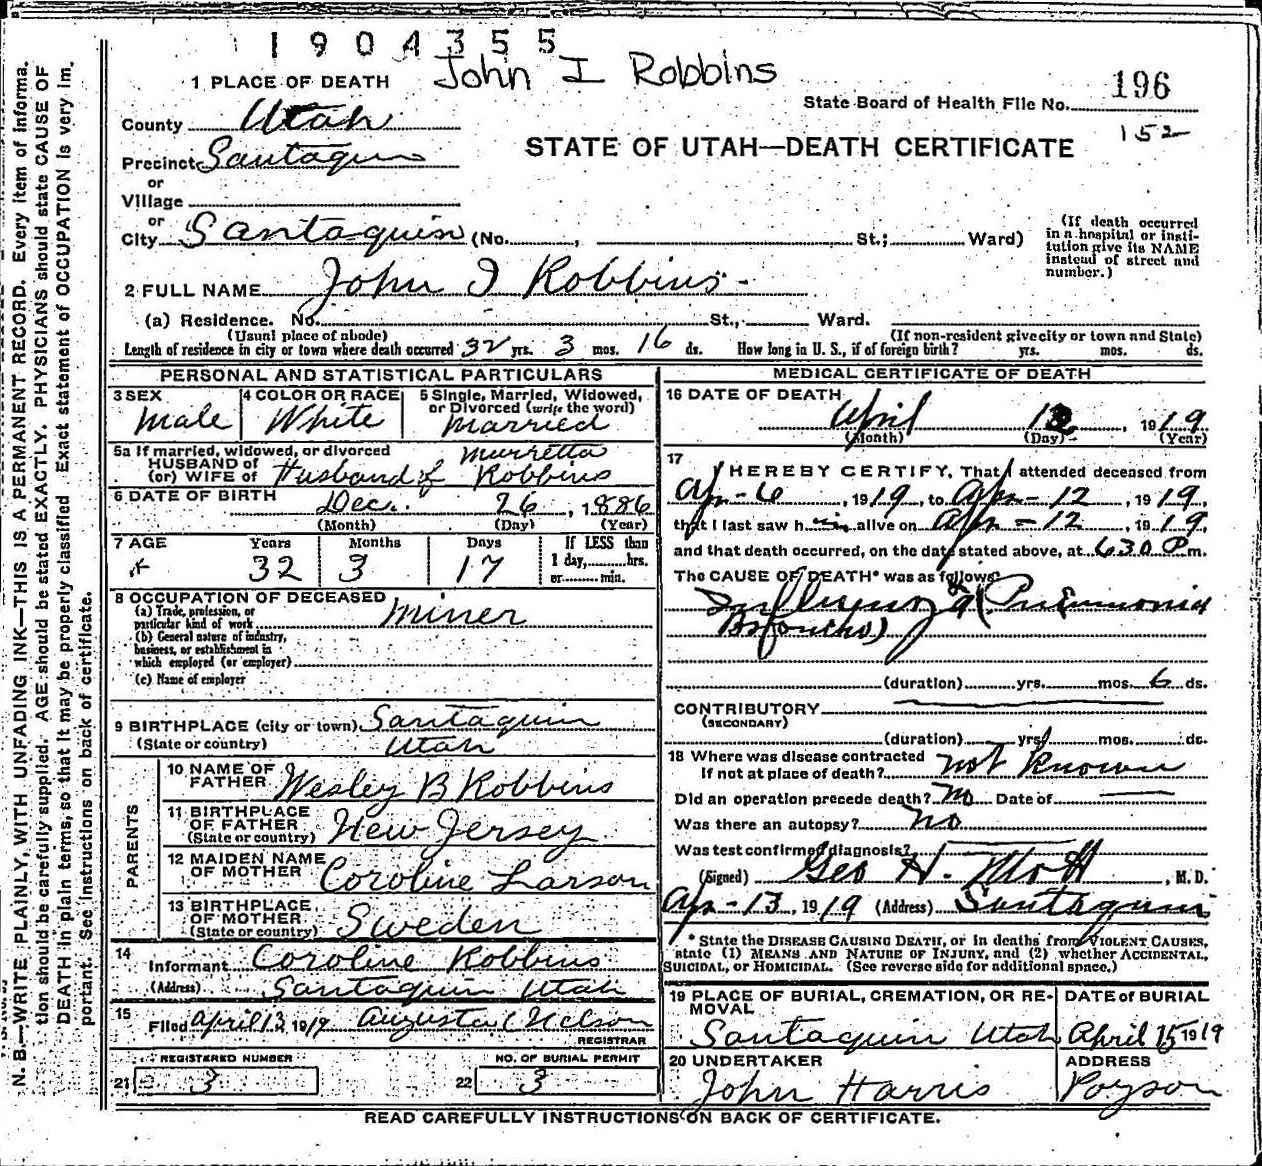 1904355
John I Robbins
1 PLACE OF DEATH
196
State Board of Health File No.
County Utah
152
STATE OF UTAH—DEATH CERTIFICATE
Precinct Santaquin
or
Village
or
City Santaquin (No. , St.; Ward)
(If death occurred in a hospital or insti-
tution give its NAME instead of street and number.)
2 FULL NAME John I Robbins
(a) Residence. No. St., Ward.
(Usual place of abode) (If non-resident give city or town and State)
Length of residence in city or town where death occurred 32 yrs. 3 mos. 16 ds. How long in U. S., if of foreign birth? yrs. mos. ds.
PERSONAL AND STATISTICAL PARTICULARS
3 SEX Male
4 COLOR OR RACE White
5 Single, Married, Widowed, or Divorced (write the word) Married
5a If married, widowed, or divorced
HUSBAND of
(or) WIFE of Husband of Murretta Robbins
6 DATE OF BIRTH Dec. 26, 1886
(Month) (Day) (Year)
7 AGE Years Months Days If LESS than
32 3 17 1 day, hrs.
or min.
8 OCCUPATION OF DECEASED
(a) Trade, profession, or
particular kind of work Miner
(b) General nature of industry,
business, or establishment in
which employed (or employer)
(c) Name of employer
9 BIRTHPLACE (city or town) Santaquin
(State or country) Utah
PARENTS
10 NAME OF
FATHER Wesley B Robbins
11 BIRTHPLACE
OF FATHER
(State or country) New Jersey
12 MAIDEN NAME
OF MOTHER Coroline Larson
13 BIRTHPLACE
OF MOTHER
(State or country) Sweden
14 Informant Coroline Robbins
(Address) Santaquin Utah
15 Filed April 13, 1919 Augusta C Nelson
REGISTRAR
REGISTERED NUMBER
21 3
NO. OF BURIAL PERMIT
22 3
MEDICAL CERTIFICATE OF DEATH
16 DATE OF DEATH
April 12, 1919
(Month) (Day) (Year)
17
I HEREBY CERTIFY, That I attended deceased from
Apr-6, 1919, to Apr-12, 1919,
that I last saw him alive on Apr-12, 1919,
and that death occurred, on the date stated above, at 630 P m.
The CAUSE OF DEATH* was as follows:
Influenza & (Pneumonia
Broncho)
(duration) yrs. mos. 6 ds.
CONTRIBUTORY
(SECONDARY)
(duration) yrs. mos. ds.
18 Where was disease contracted
if not at place of death? not known
Did an operation precede death? no Date of
Was there an autopsy? no
Was test confirmed diagnosis?
(Signed) Geo H. Mott, M.D.
Apr-13, 1919 (Address) Santaquin
* State the DISEASE CAUSING DEATH, or in deaths from VIOLENT CAUSES,
state (1) MEANS AND NATURE OF INJURY, and (2) whether ACCIDENTAL,
SUICIDAL, or HOMICIDAL. (See reverse side for additional space.)
19 PLACE OF BURIAL, CREMATION, OR RE-
MOVAL
Santaquin Utah
DATE of BURIAL
April 15 1919
20 UNDERTAKER
John Harris
ADDRESS
Payson
READ CAREFULLY INSTRUCTIONS ON BACK OF CERTIFICATE.
N. B.—WRITE PLAINLY, WITH UNFADING INK—THIS IS A PERMANENT RECORD. Every item of informa-
tion should be carefully supplied. AGE should be stated EXACTLY. PHYSICIANS should state CAUSE OF
DEATH in plain terms, so that it may be properly classified. Exact statement of OCCUPATION is very im-
portant. See instructions on back of certificate.